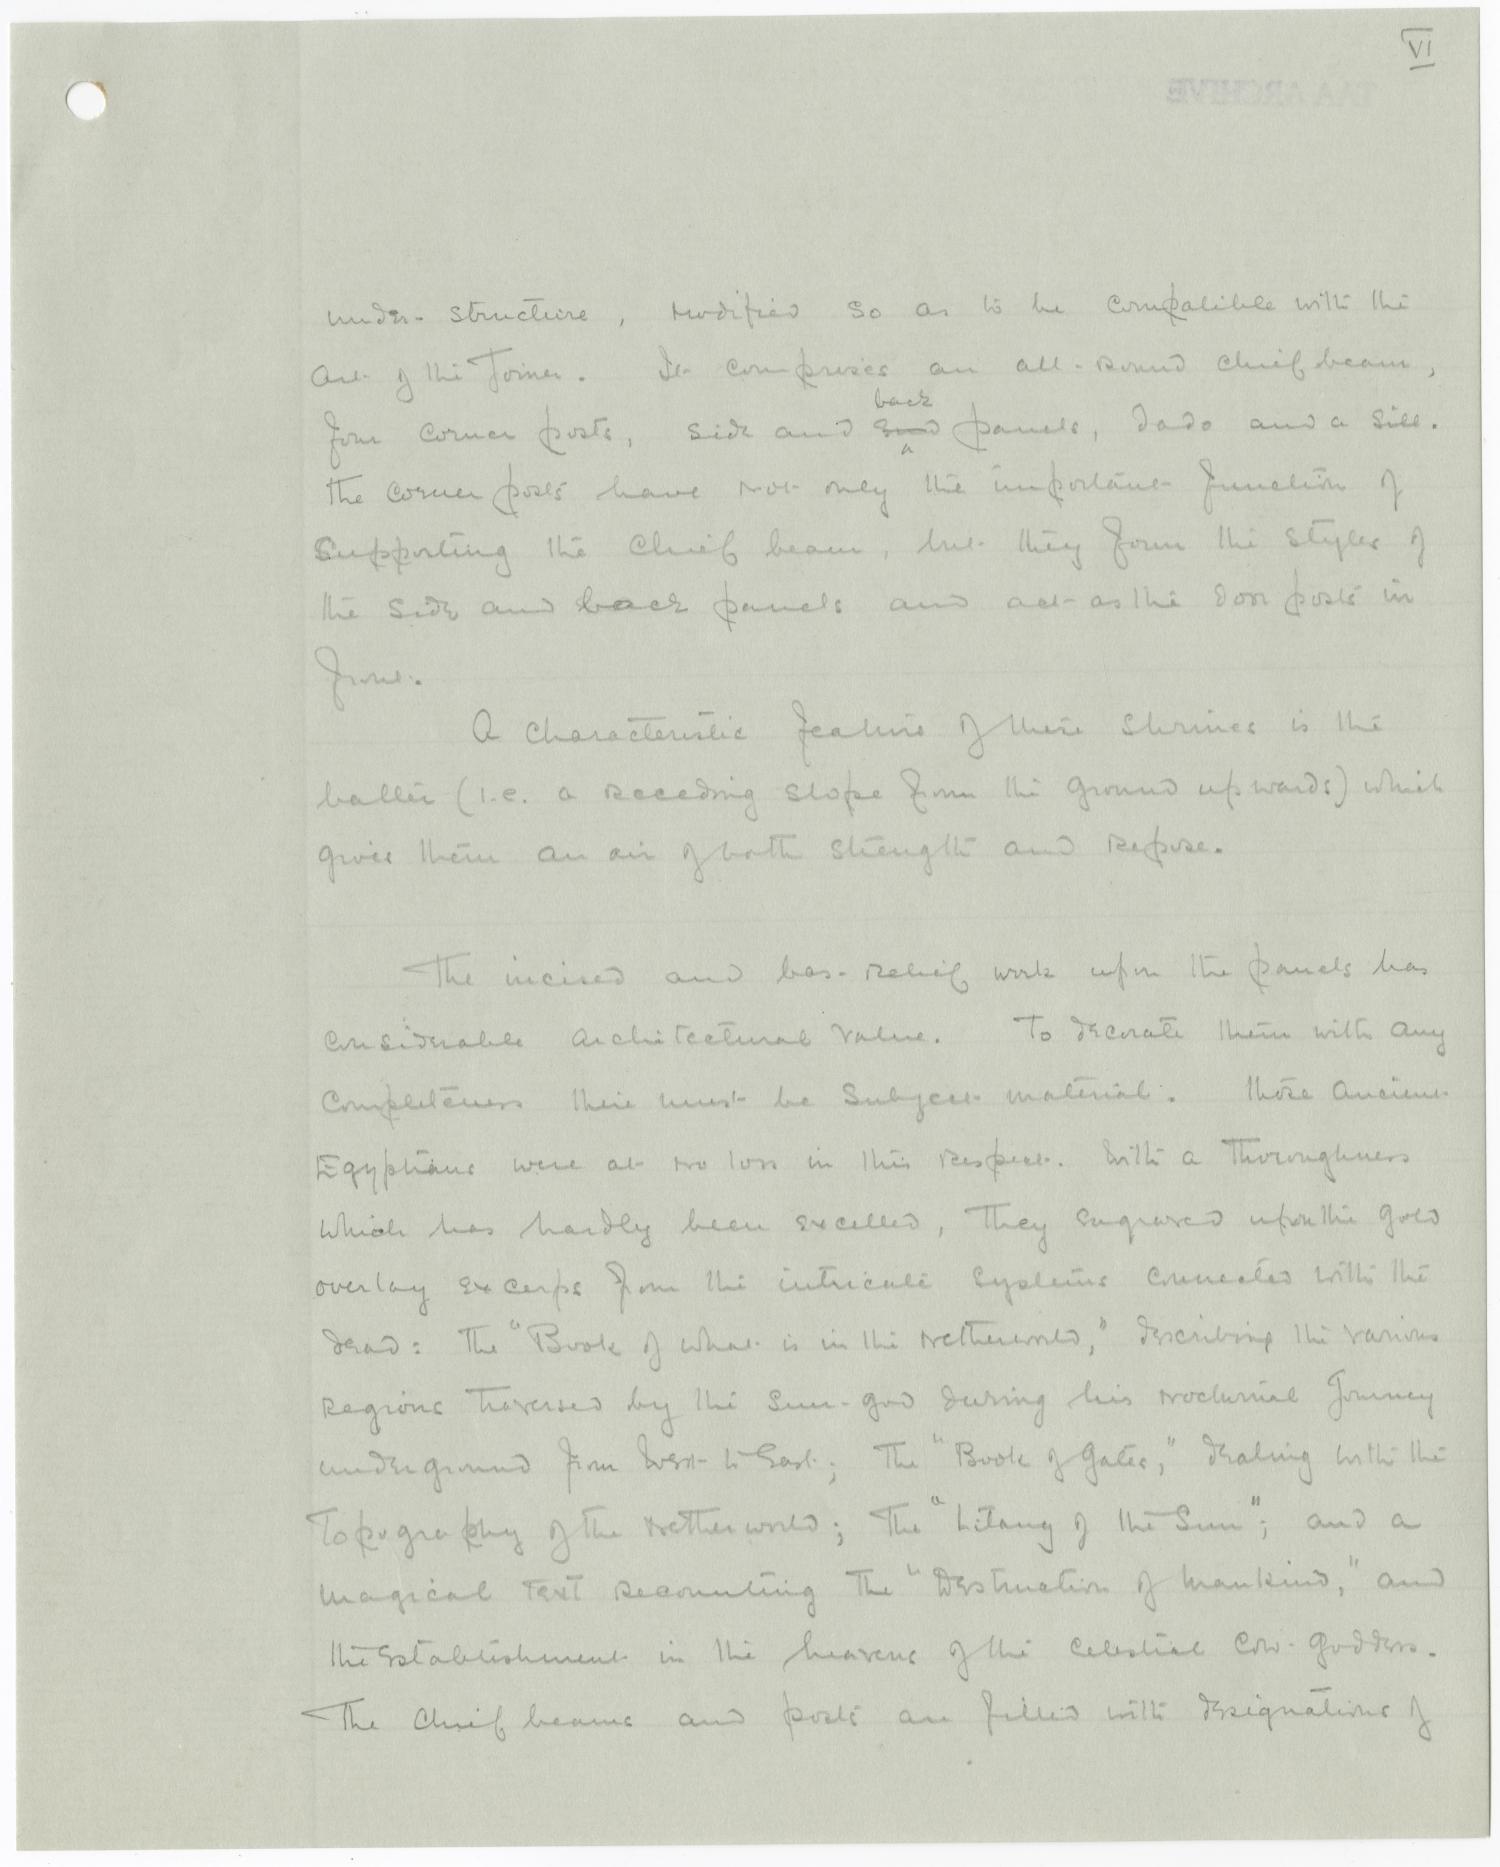 VI
TAA ARCHIVE
under-structure, modified so as to be compatible with the
art of the Joiner. It comprises an all-round chief beam,
back
four corner posts, side and end panels, dado and a sill.
The corner posts have not only the important function of
supporting the chief beam, but they form the styles of
the side and back panels and act as the door posts in
front.
A characteristic feature of these shrines is the
batter (i.e. a receeding slope from the ground upwards) which
gives them an air of both strength and repose.
The incised and bas-relief work upon the panels has
considerable architectural value. To decorate them with any
completeness there must be subject material. Those Ancient
Egyptians were at no loss in this respect. With a thoroughness
which has hardly been excelled, they engraved upon the gold
overlay excerps from the intricate systems connected with the
dead: The "Book of what is in the Netherworld," describing the various
regions traversed by the Sun-god during his nocturnal Journey
underground from West to East; The "Book of Gates," dealing with the
Topography of the Netherworld; The "Litany of the Sun"; and a
magical text recounting the "Destruction of Mankind," and
the establishment in the heavens of the celestial Cow-Goddess.
The chief beams and posts are filled with designations of